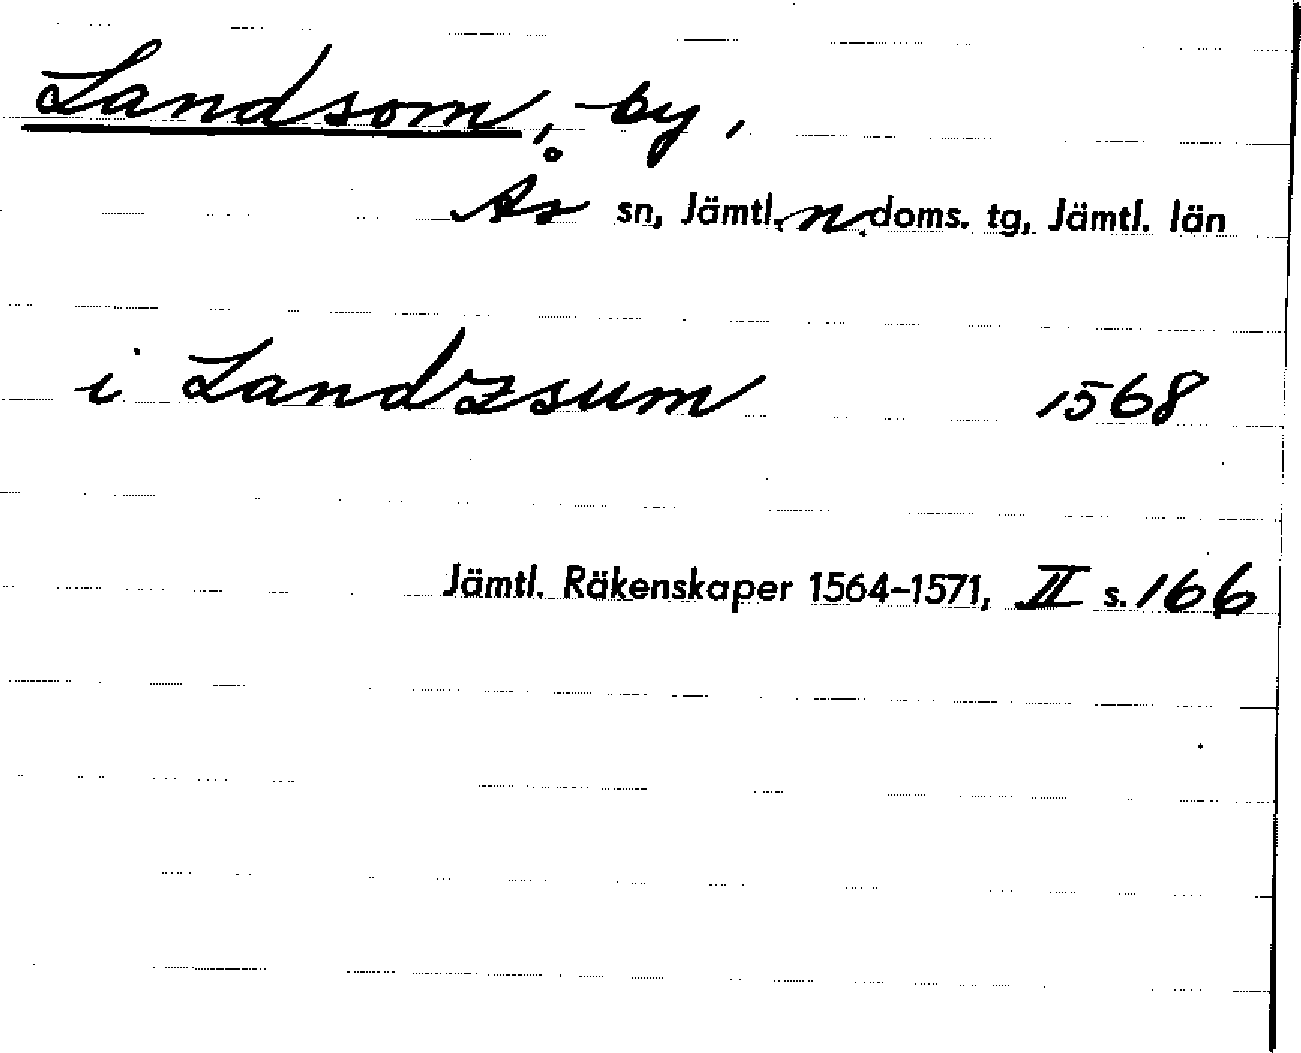 Landsom, by,
Ås sn, Jämtl. n. doms. tg, Jämtl. län
i Landzsum 1568
Jämtl. Räkenskaper 1564-1571, II s. 166